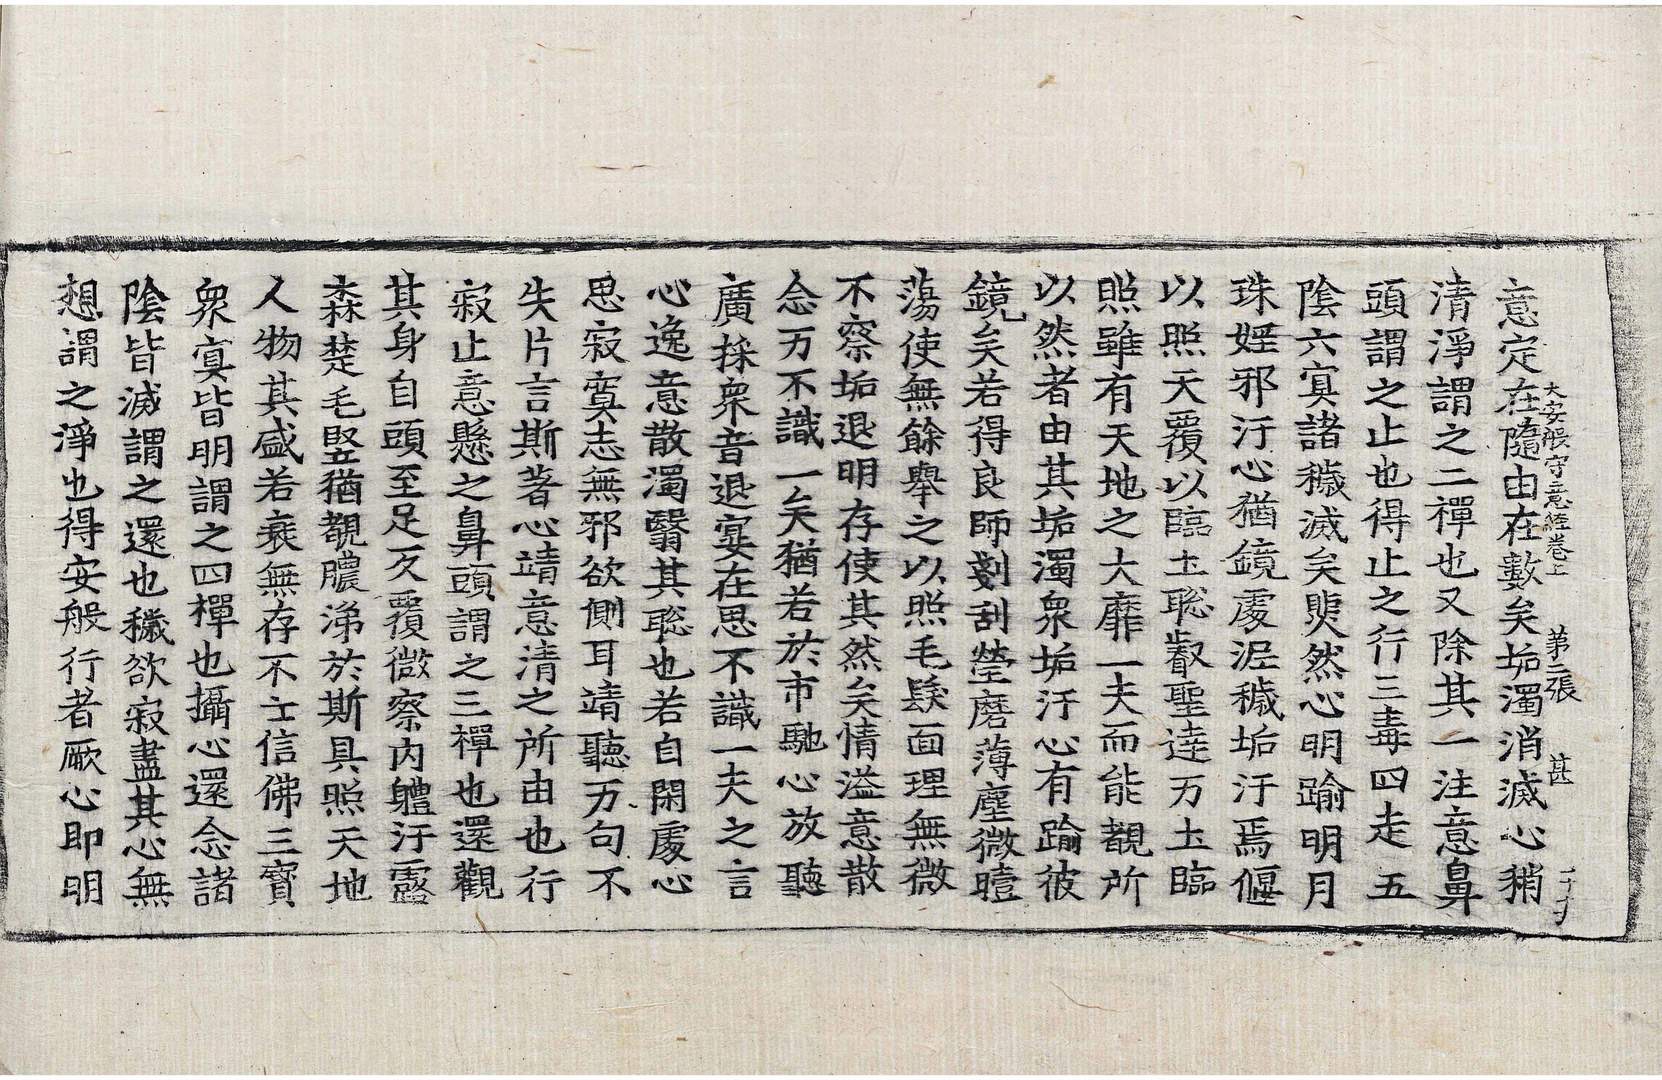 大安般守意經卷上 第二張 甚
意定在隨由在數矣垢濁消滅心稍
清淨謂之二禪也又除其一注意鼻
頭謂之止也得止之行三毒四走五
陰六冥諸穢滅矣煚然心明踰明月
珠婬邪汙心猶鏡處泥穢垢汙焉偃
以照天覆以臨土聡叡聖達万土臨
照雖有天地之大靡一夫而能覩所
以然者由其垢濁衆垢汙心有踰彼
鏡矣若得良師剗刮瑩磨薄塵微曀
蕩使無餘舉之以照毛髮面理無微
不察垢退明存使其然矣情溢意散
念万不識一矣猶若於市馳心放聽
廣採衆音退宴在思不識一夫之言
心逸意散濁翳其聡也若自閑處心
思寂寞志無邪欲側耳靖聽万句不
失片言斯著心靖意清之所由也行
寂止意懸之鼻頭謂之三禪也還觀
其身自頭至足反覆微察内體汙露
森楚毛竪猶覩膿涕於斯具照天地
人物其盛若衰無存不亡信佛三寶
衆冥皆明謂之四禪也攝心還念諸
陰皆滅謂之還也穢欲寂盡其心無
想謂之淨也得安般行者厥心即明